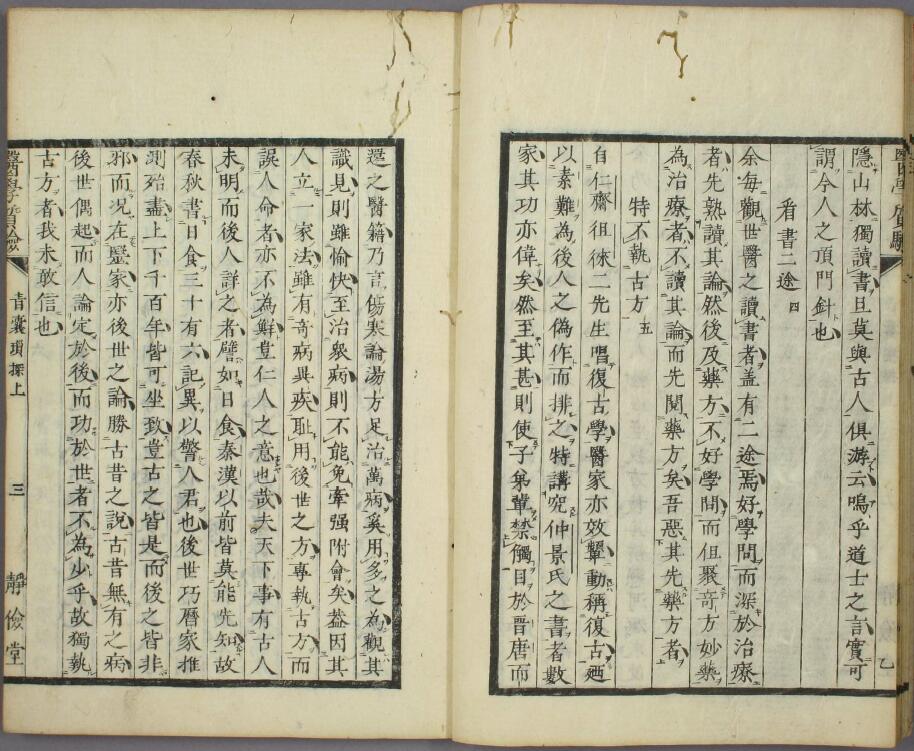 隱山林獨讀書旦莫與古人俱游云嗚乎道士之言實可
謂今人之頂門針也
看書二途 四
余每觀世醫之讀書者盖有二途焉好學問而深於治療
者先熟讀其論然後及藥方不好學問而但聚奇方妙藥
為治療者不讀其論而先閱藥方矣吾惡其先藥方者
特不執古方 五
自仁齋徂徠二先生唱復古學醫家亦效顰動稱復古廼
以素難為後人之偽作而排之特講究仲景氏之書者數
家其功亦偉矣然至其甚則使子弟輩禁觸目於晉唐而
還之醫籍乃言傷寒論湯方足治萬病奚用多之為觀其
識見則雖愉快至治衆病則不能免牽强附會矣葢因其
人立一家法雖有奇病異疾耻用後世之方專執古方而
誤人命者亦不為鮮豈仁人之意也哉夫天下事有古人
未明而後人詳之者譬如日食秦漢以前皆莫能先知故
春秋書日食三十有六記異以警人君也後世巧曆家推
測殆盡上下千百年皆可坐致豈古之皆是而後之皆非
邪而况在醫家亦後世之論勝古昔之說古昔無有之病
後世偶起而人論定於後而功於世者不為少乎故獨執
古方者我未敢信也
青囊瑣探上
三
靜儉堂